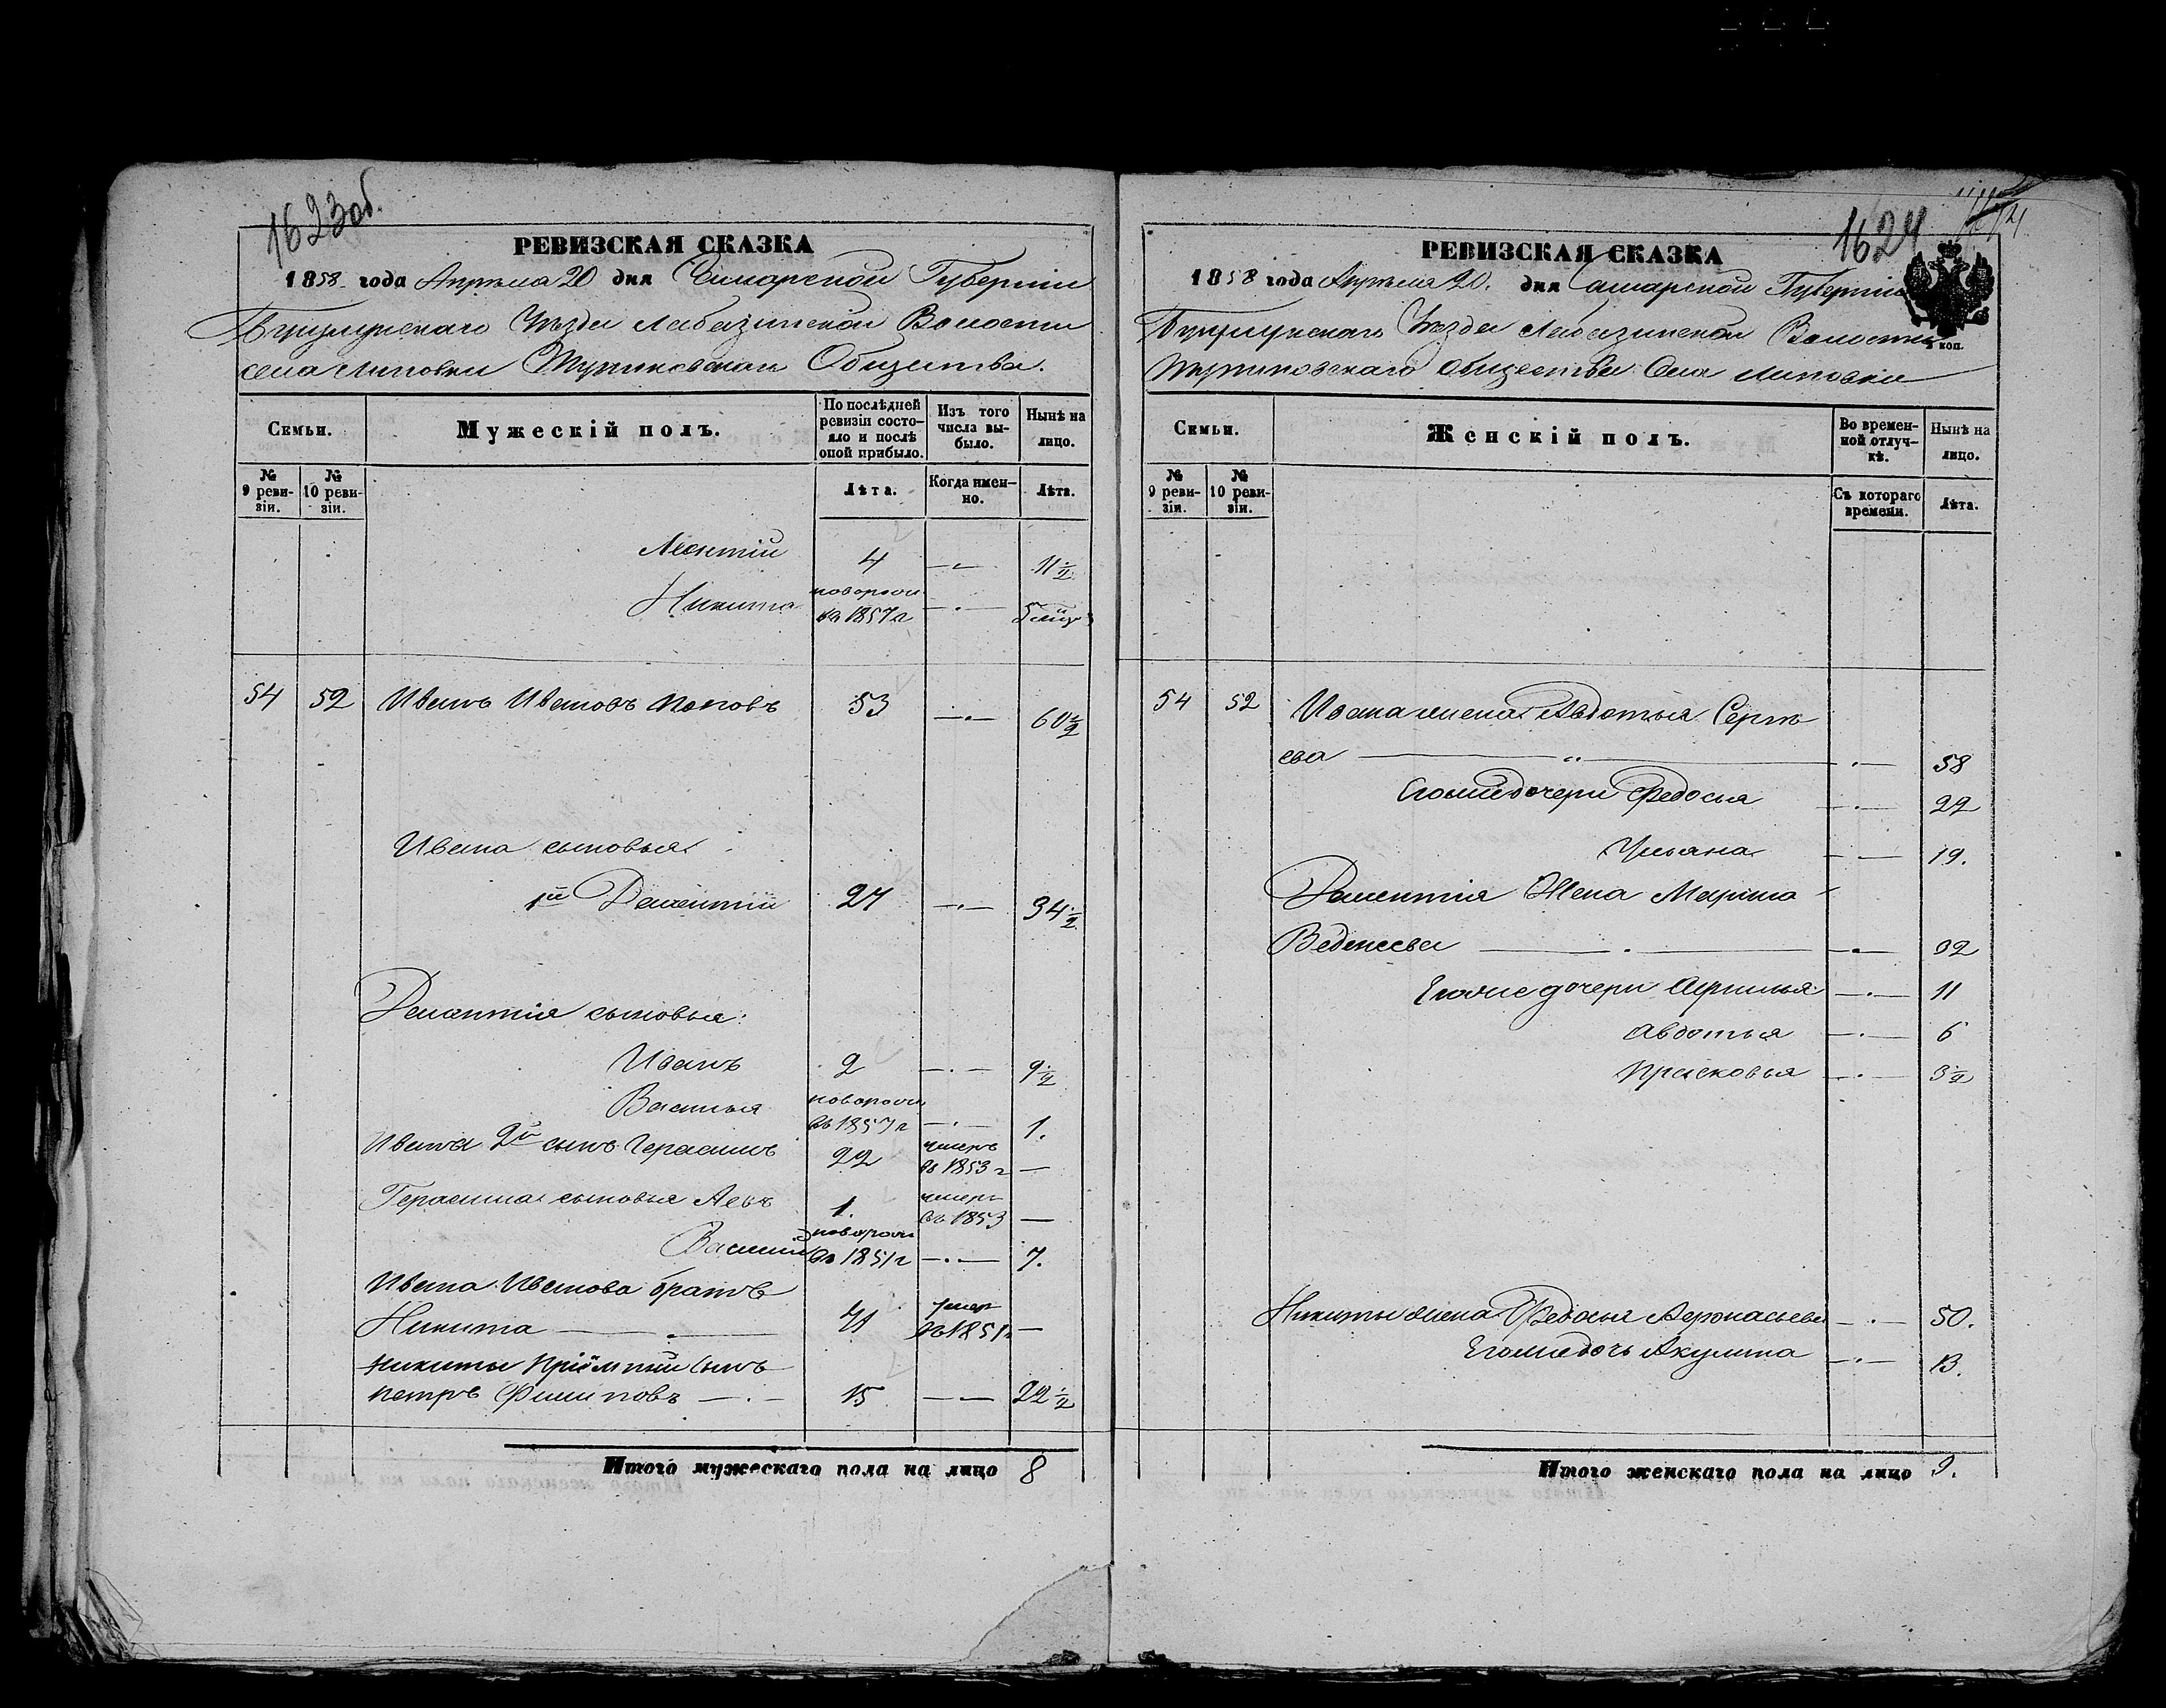 1623 об.
РЕВИЗСКАЯ СКАЗКА
1858 года Апреля 20 дня Самарской Губерніи
Бузулукскаго Уезда Лабазинской Волости
села Липовки Общества.
Семьи.
Мужескій полъ.
По послѣдней ревизіи состояло и послѣ оной прибыло.
Изъ того числа выбыло.
Нынѣ на лицо.
№ 9 ревизіи.
№ 10 ревизіи.
Лѣта.
Когда именно.
Лѣта.
Леонтій 4 — 11½
Никита новорожд въ 1857 г — 5 мѣс
54 52 Иванъ Ивановъ Поповъ 53 — 60½
Ивана сыновья
1й Дементій 27 — 34½
Дементія сыновья:
Иванъ 2 — 9½
Василья новорож въ 1857 г — 1.
Ивана 2й сынъ Герасимъ 22 умеръ въ 1853 г —
Герасима сыновья Левъ 1. умеръ въ 1853 —
Василій новорож въ 1851 г — 7.
Ивана Иванова братъ
Никита — 41 умер въ 1851 г —
Никиты пріёмный сынъ
Петръ Филиповъ — 15 — 22½
Итого мужескаго пола на лицо 8
1624
РЕВИЗСКАЯ СКАЗКА
1858 года Апреля 20. дня Самарской Губерніи
Бузулукскаго Уезда Лабазинской Волости
коп.
общества Села Липовки
Семьи.
Женскій полъ.
Во временной отлучкѣ.
Нынѣ на лицо.
№ 9 ревизіи.
№ 10 ревизіи.
Съ котораго времени.
Лѣта.
54 52 Ивана жена Авдотья Серге
ева — 58
Его же дочери Федосья — 22
Ульяна — 19.
Дементія Жена Марина
Веденеева — 32
Его же дочери Афимья — 11
Авдотья — 6
Прасковья — 3½
Никиты жена Федосья Афонасьева — 50.
Его же дочь Акулина — 13.
Итого женскаго пола на лицо 9.